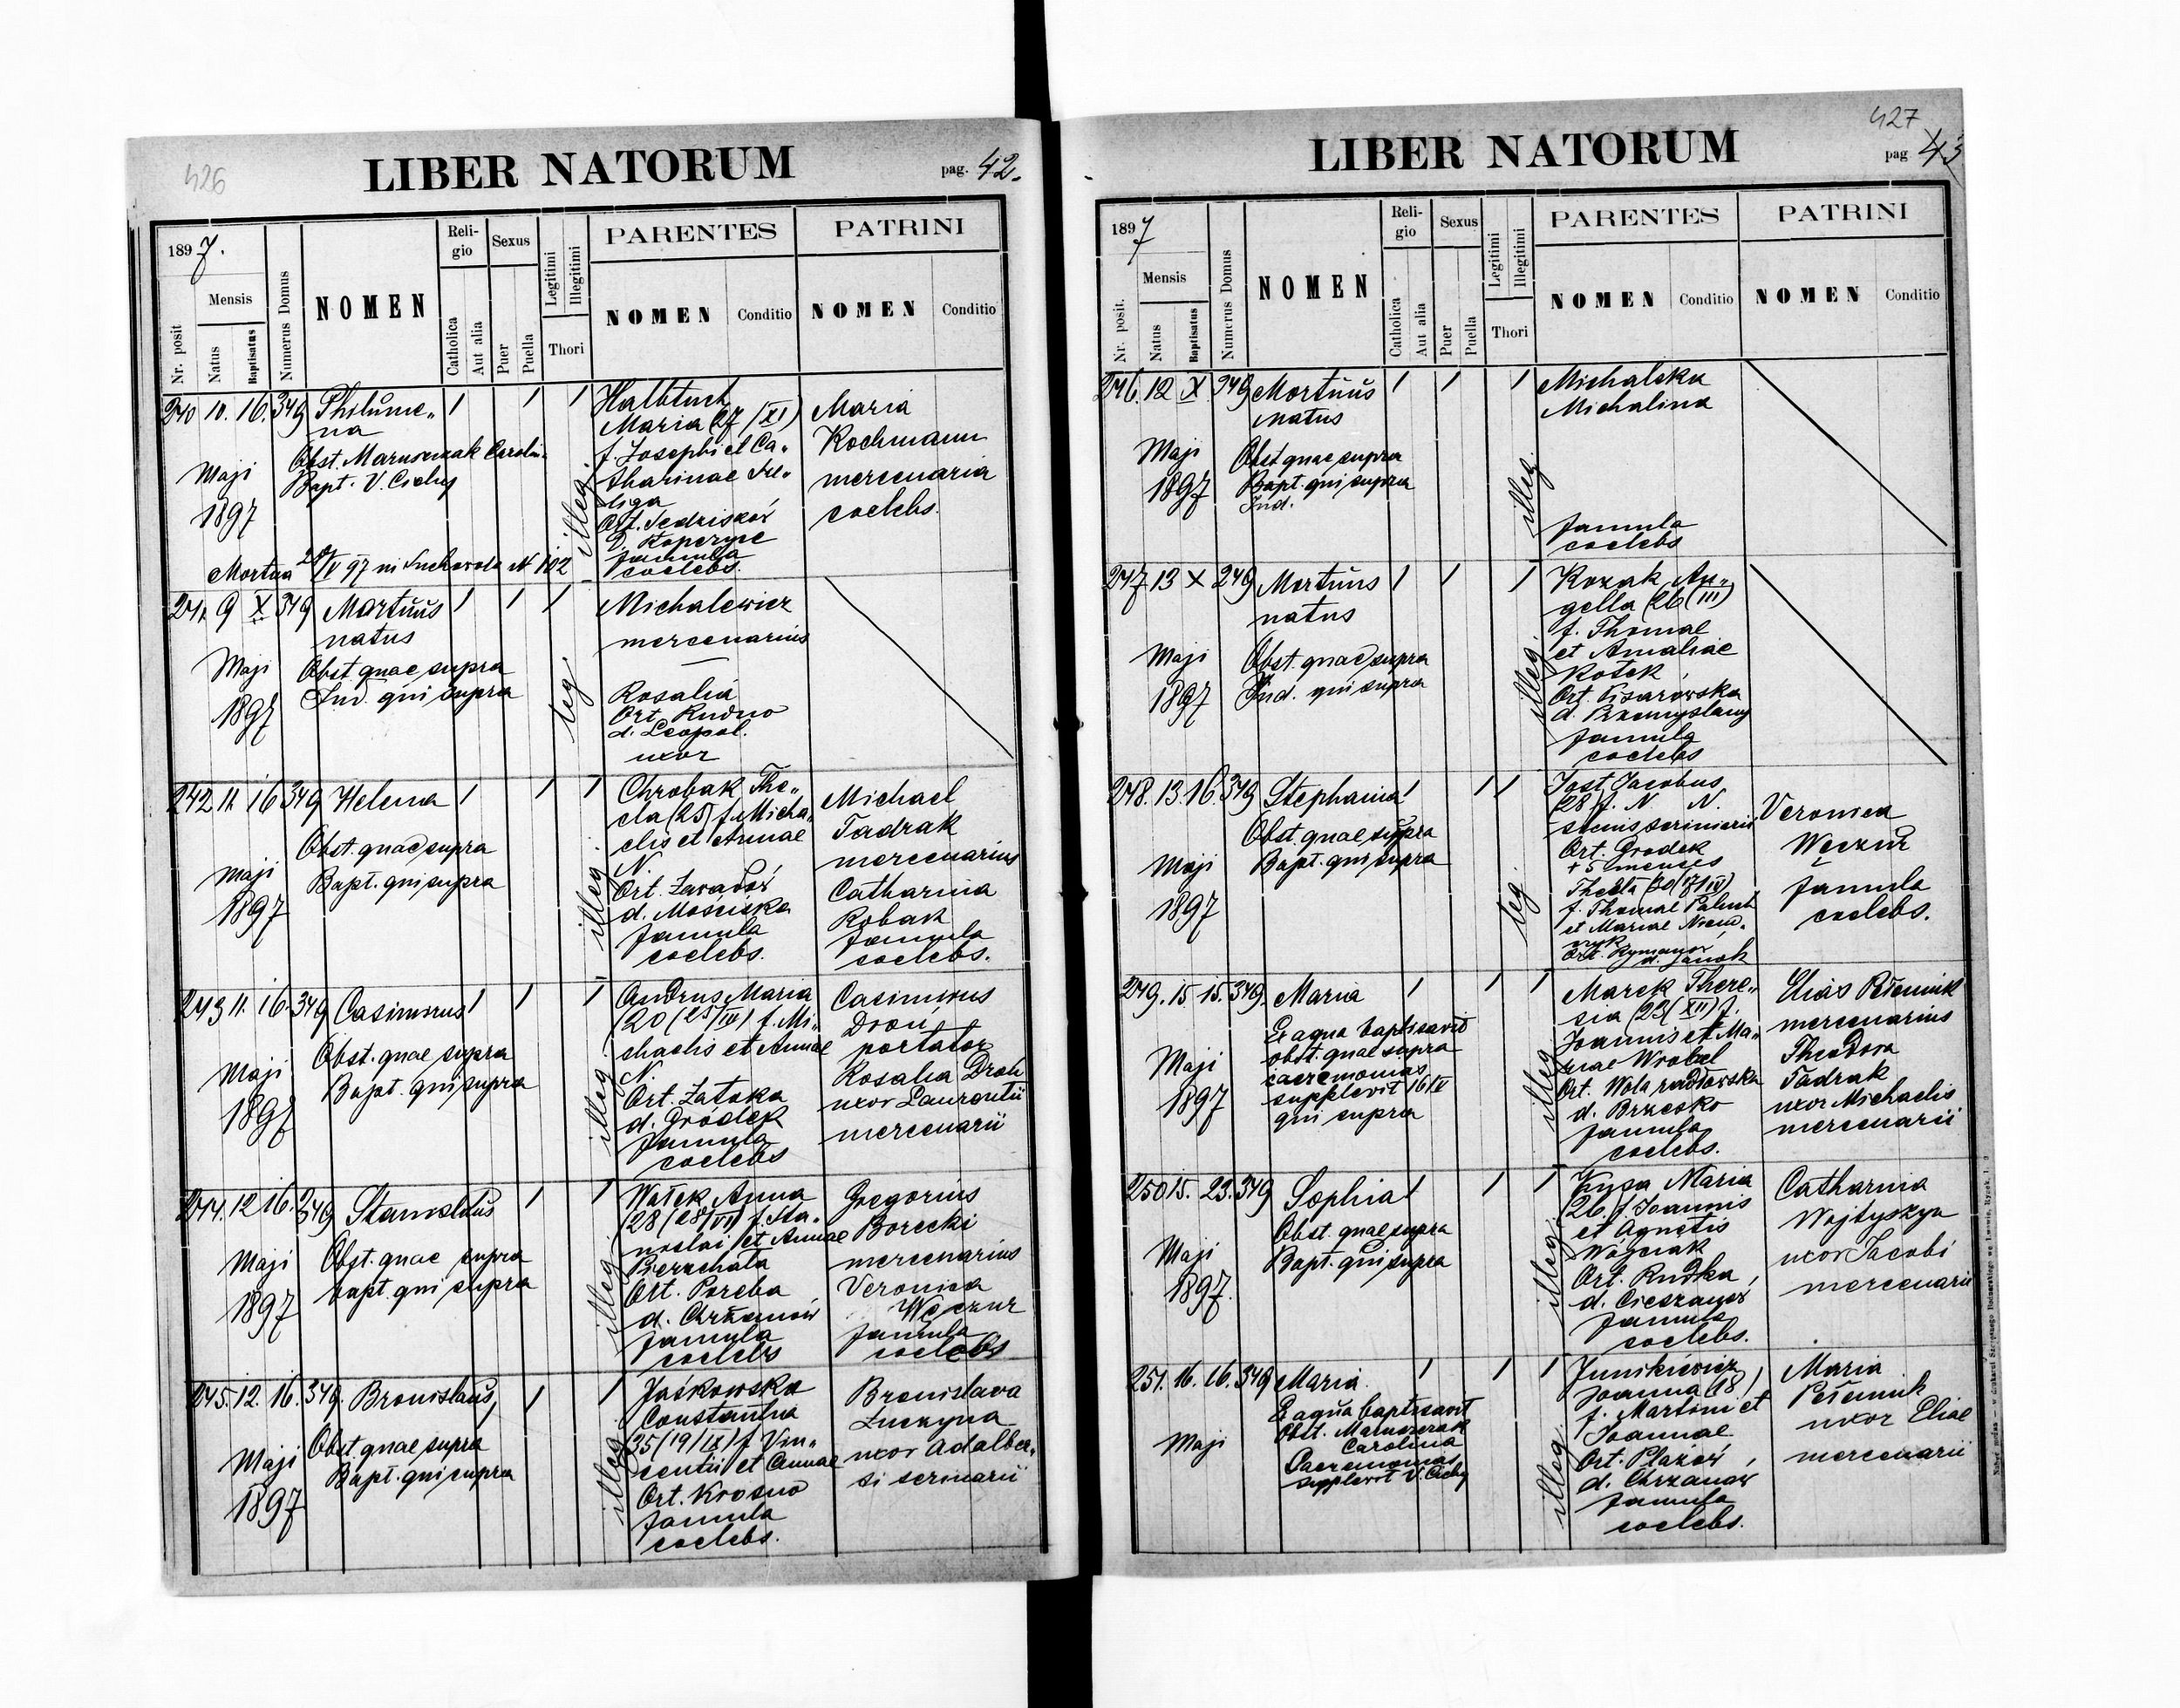 426
LIBER NATORUM
pag. 42.
1897.
Nr. posit
Mensis
Natus
Baptisatus
Numerus Domus
NOMEN
Reli-
gio
Catholica
Aut alia
Sexus
Puer
Puella
Legitimi
Illegitimi
Thori
PARENTES
NOMEN
Conditio
PATRINI
NOMEN
Conditio
240 10. 16. 349 Philume„
na
Maji
1897
Obst. Maruszczak Carolin.
Bapt. V. Cichy
Mortua 20/V 97 in Suchowola N 102
1 1 1
illeg.
Halbtuch
Maria (27/XI)
f. Josephi et Ca„
tharinae Sze„
liga
Ort. Sedziszów
d. Ropczyce
famula
coelebs.
Maria
Kochmann
mercenaria
coelebs.
241. 9 X 349 Mortuus
natus
Maji
1897
Obst. quae supra
Ind. qui supra
1 1 1
leg.
Michalewicz
mercenarius
Rosalia
Ort. Rudno
d. Leopol.
uxor
242 11. 16 349 Helena
Maji
1897
Obst. quae supra
Bapt. qui supra
1 1 1
illeg.
Chrobak The„
cla (25) f. Micha„
elis et Annae
N.
Ort. Zawadów
d. Mościska
famula
coelebs.
Michael
Tadrak
mercenarius
Catharina
Robak
famula
coelebs.
243 11. 16. 349 Casimirus
Maji
1897
Obst. quae supra
Bapt. qui supra
1 1 1
illeg.
Andrus Maria
(20 (25/IV) f. Mi„
chaelis et Annae
N.
Ort. Zatoka
d. Gródek
famula
coelebs
Casimirus
Droń
portator
Rosalia Droń
uxor Laurentii
mercenarii
244. 12 16. 349 Stanislaus
Maji
1897
Obst. quae supra
bapt. qui supra
1 1
illeg.
Wałek Anna
(28 (28/VI) f. Sta„
nislai et Annae
Pierzchała
Ort. Poręba
d. Chrzanów
famula
coelebs
Gregorius
Borecki
mercenarius
Veronica
Węczur
famula
coelebs
245. 12. 16. 349. Bronislaus,
Maji
1897
Obst. quae supra
Bapt. qui supra
1 1
illeg.
Jaśkowska
Constantia
35 (19/IX) f. Vin„
centii et Annae
Ort. Krosno
famula
coelebs.
Bronislava
Luczyna
uxor Adalber„
ti scriniarii
427
LIBER NATORUM
pag 43
1897
Nr. posit.
Mensis
Natus
Baptisatus
Numerus Domus
NOMEN
Reli-
gio
Catholica
Aut alia
Sexus
Puer
Puella
Legitimi
Illegitimi
Thori
PARENTES
NOMEN
Conditio
PATRINI
NOMEN
Conditio
246. 12 X 349 Mortuus
natus
Maji
1897
Obst quae supra
Bapt. qui supra
Ind.
1 1 1
illeg.
Michalska
Michalina
famula
coelebs
247 13 X 249 Mortuus
natus
Maji
1897
Obst. quae supra
Ind. qui supra
1 1 1
illeg.
Kozak An„
gella (26 (III)
f. Thomae
et Amaliae
Kotek
Ort. Pisarowska
d. Przemyslany
famula
coelebs
248. 13. 16. 349 Stephania
Maji
1897
Obst. quae supra
Bapt. qui supra
1 1 1
leg.
Jast Jacobus
(28) f. N N.
scriniarii
Ort. Gródek
+ 5 menses
Thecla 30 (
f. Thomae Paluch
et Mariae
Ort. Rymanów
d. Sanok
Veronica
Węczur
famula
coelebs.
249. 15 15. 349. Maria
Maji
1897
Ex aqua baptisavit
obst. quae supra
caeremonias
supplevit 16/V
qui supra
1 1 1
illeg
Marek There„
sia (23 (XII) f.
Joannis et Ma„
riae Wrobel
Ort. Wola radłowska
d. Brzesko
famula
coelebs.
Elias Pełeniuk
mercenarius
Theodora
Tadrak
uxor Michaelis
mercenarii
250 15. 23. 349 Sophia
Maji
1897.
Obst. quae supra
Bapt. qui supra
1 1 1
illeg.
Kusa Maria
(26. f. Joannis
et Agnetis
Wójciak
Ort. Rudka,
d. Cieszanów
famula
coelebs.
Catharina
Wojtyszyn
uxor Jacobi
mercenarii
251. 16. 16. 349 Maria.
Maji
Ex aqua baptisavit
Obst. Maruszczak
Carolina
Caeremonias
supplevit V. Cichy
1 1 1
illeg.
Junikiewicz
Joanna (18)
f. Martini et
Joannae
Ort. Płazów,
d. Chrzanów
famula
coelebs.
Maria
Pełeniuk
uxor Eliae
mercenarii